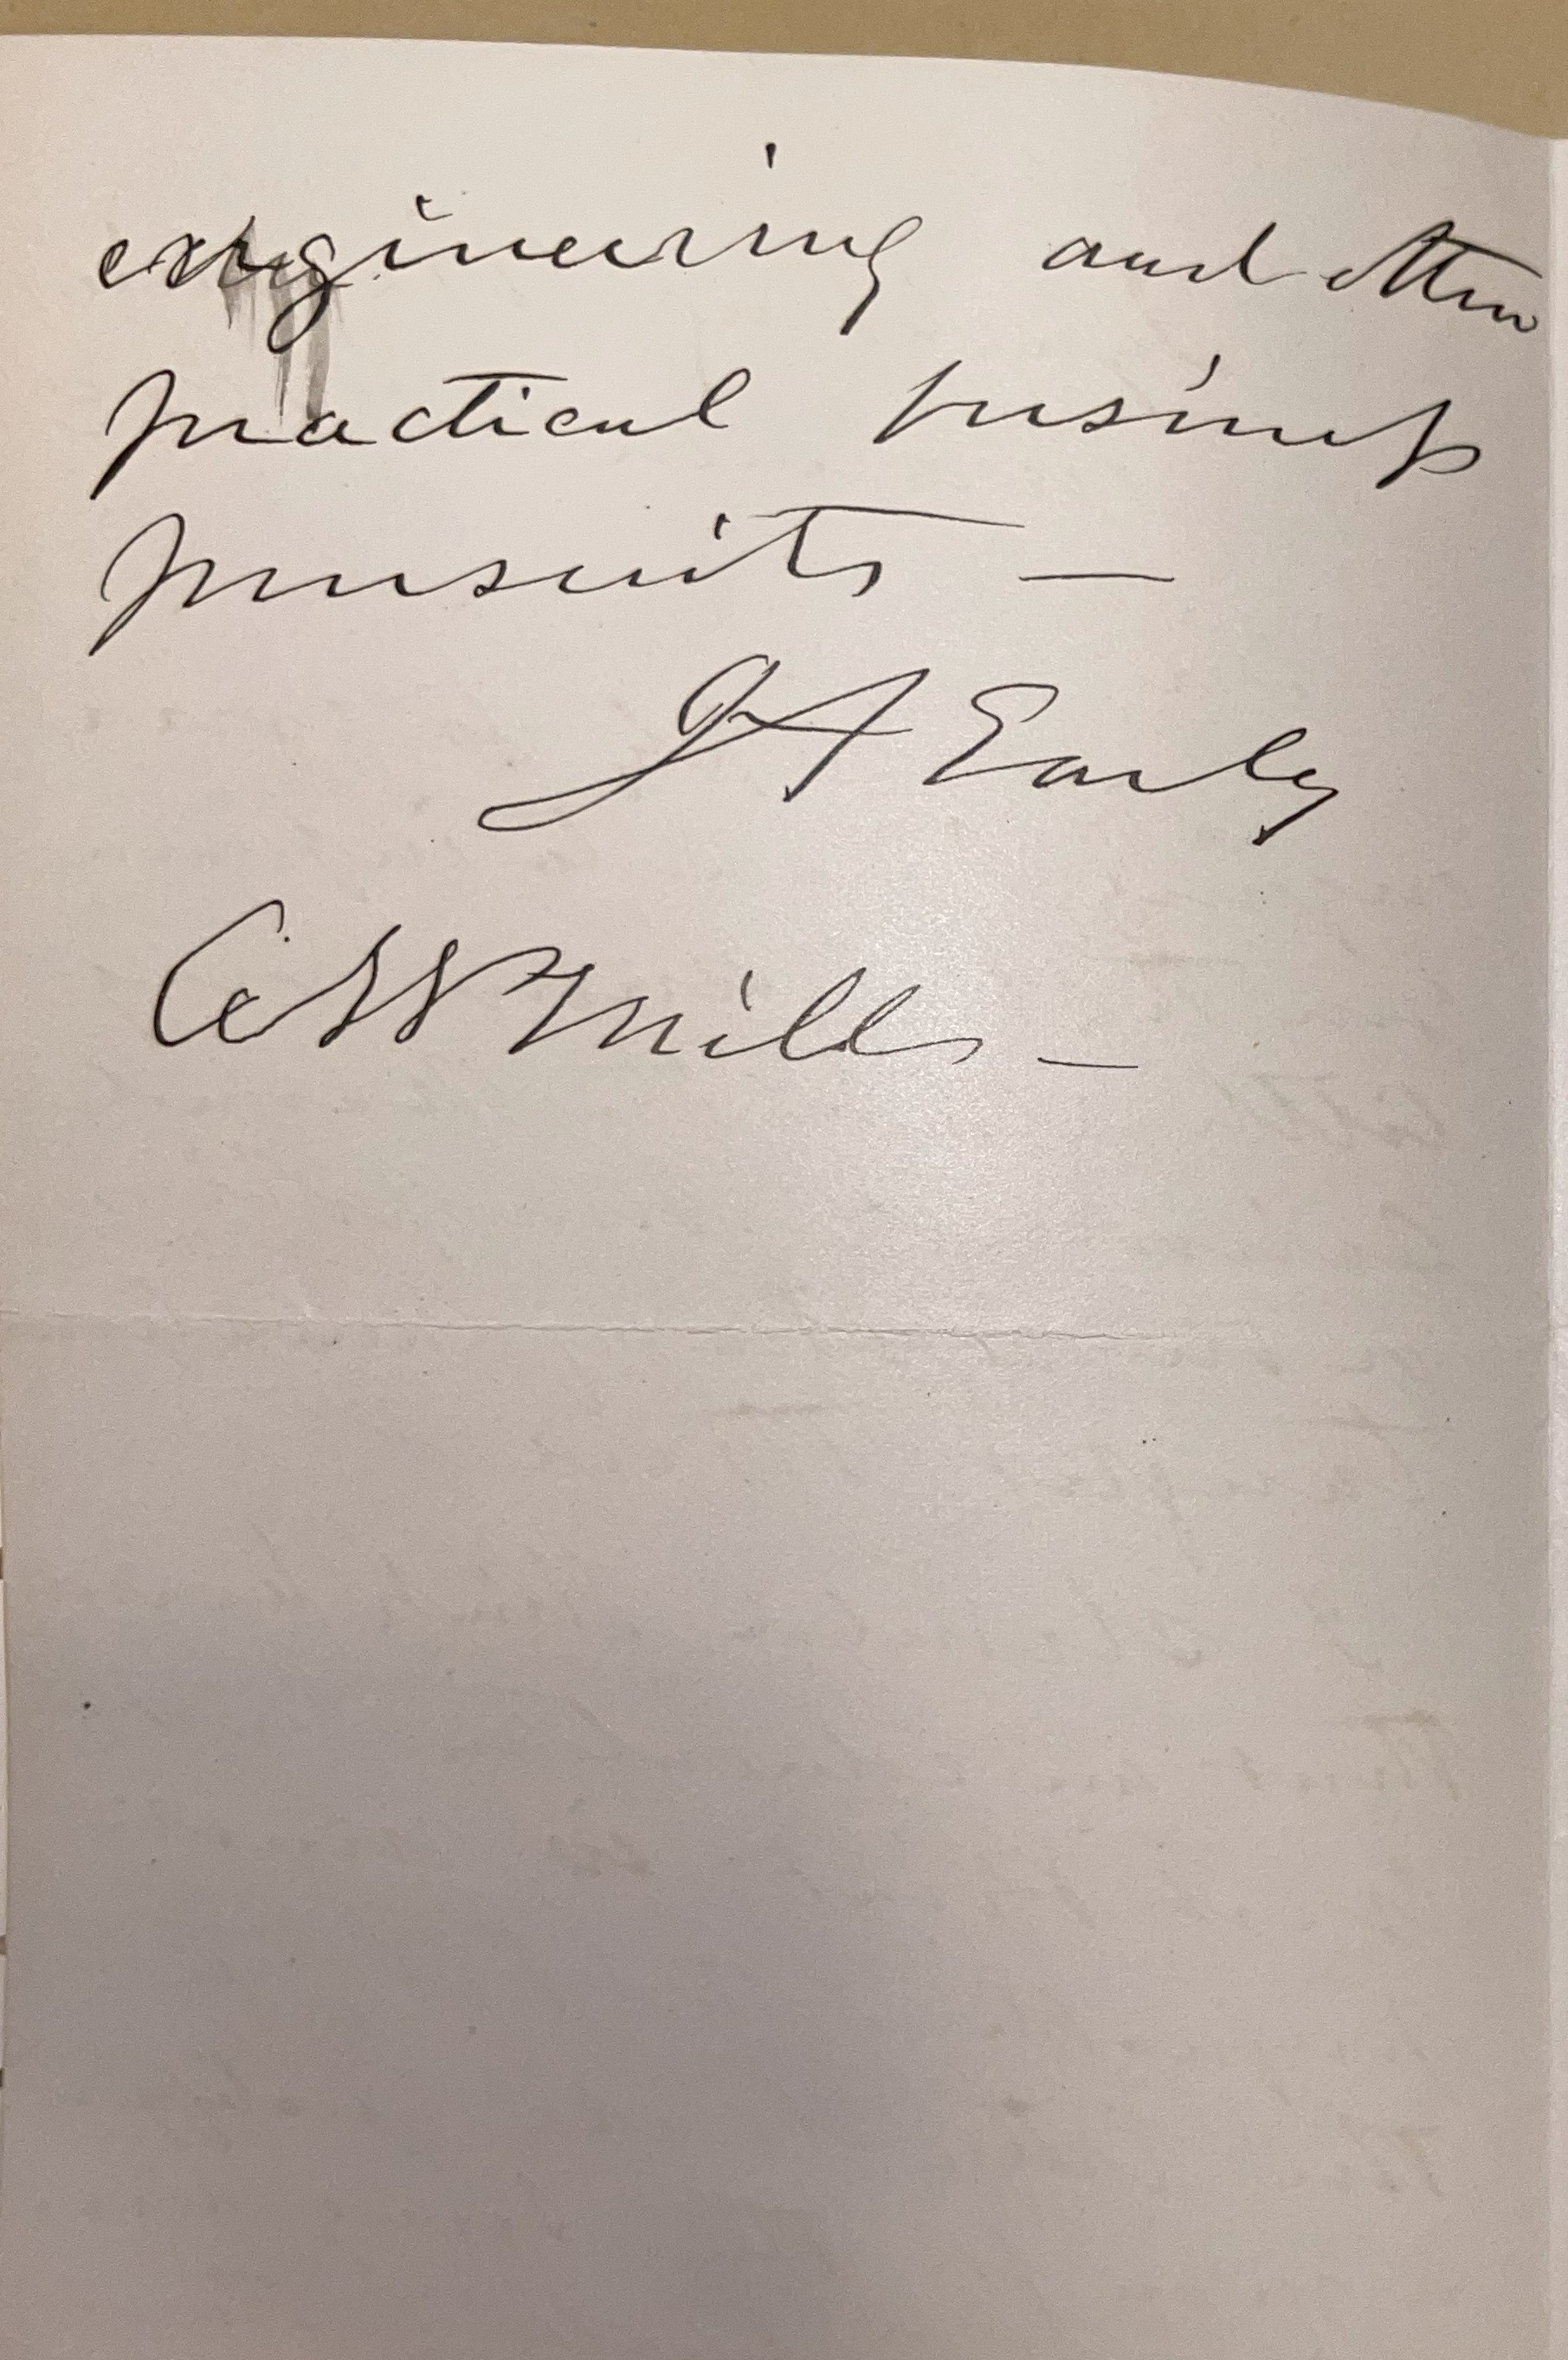 engineering and other
practical business
pursuits —
J A Early
Mills —